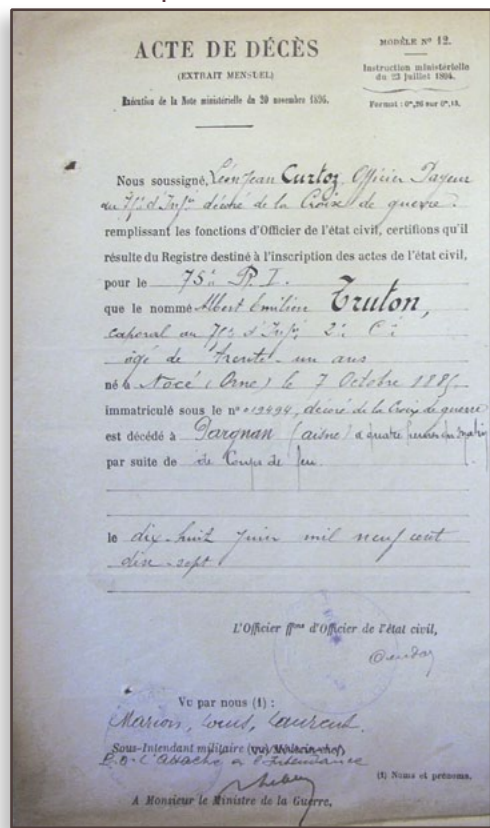 ACTE DE DÉCÈS
(EXTRAIT MENSUEL)
Exécution de la Note ministérielle du 20 novembre 1896.
MODÈLE N° 12.
Instruction ministérielle
du 23 juillet 1894.
Format : 0m,26 sur 0m,18.
Nous soussigné, Léon Jean Curtoz, Officier Payeur
au 75e d'Infie décoré de la Croix de guerre.
remplissant les fonctions d'Officier de l'état civil, certifions qu'il
résulte du Registre destiné à l'inscription des actes de l'état civil,
pour le 75e R. I.
que le nommé Albert Emilien Truton,
caporal au 75e d'Infie 2e Cie
âgé de trente-un ans
né à Nocé (Orne) le 7 Octobre 1885
immatriculé sous le n° 019494, décoré de la Croix de guerre
est décédé à Dargnan (aisne) à quatre heures du matin
par suite de de Coups de feu.
le dix-huit juin mil neuf cent
dix-sept
L'Officier ffons d'Officier de l'état civil,
Vu par nous (1) :
Marion, Louis, Laurent.
Sous-Intendant militaire (ou) Médecin-chef)
P.O. L'Attaché à l'Intendance
(1) Noms et prénoms.
A Monsieur le Ministre de la Guerre.